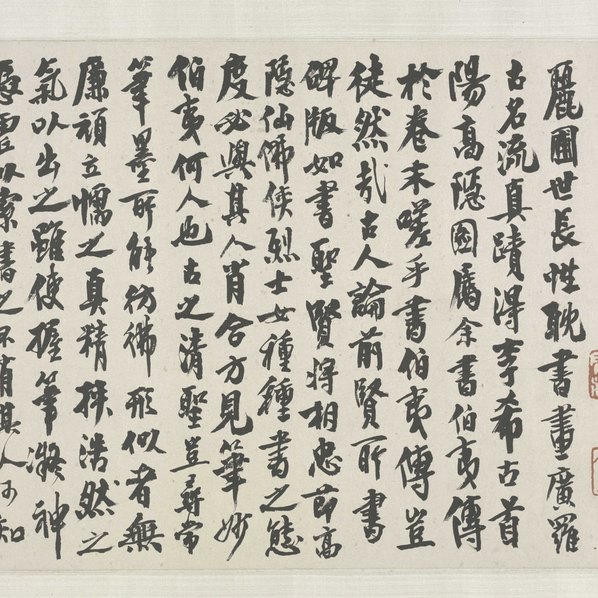 麗圃世長性耽書畫廣羅
古名流真蹟得李希古首
陽高隱圖屬余書伯夷傳
於卷末嗟乎書伯夷傳豈
徒然哉古人論前賢所書
碑版如書聖賢將相忠節高
隱仙佛俠烈士女種種書之態
度必與其人肖合方見筆妙
伯夷何人也古之清聖豈尋常
筆墨所能彷彿形似者無
廉頑立懦之真精探浩然之
氣以出之雖使握筆凝神